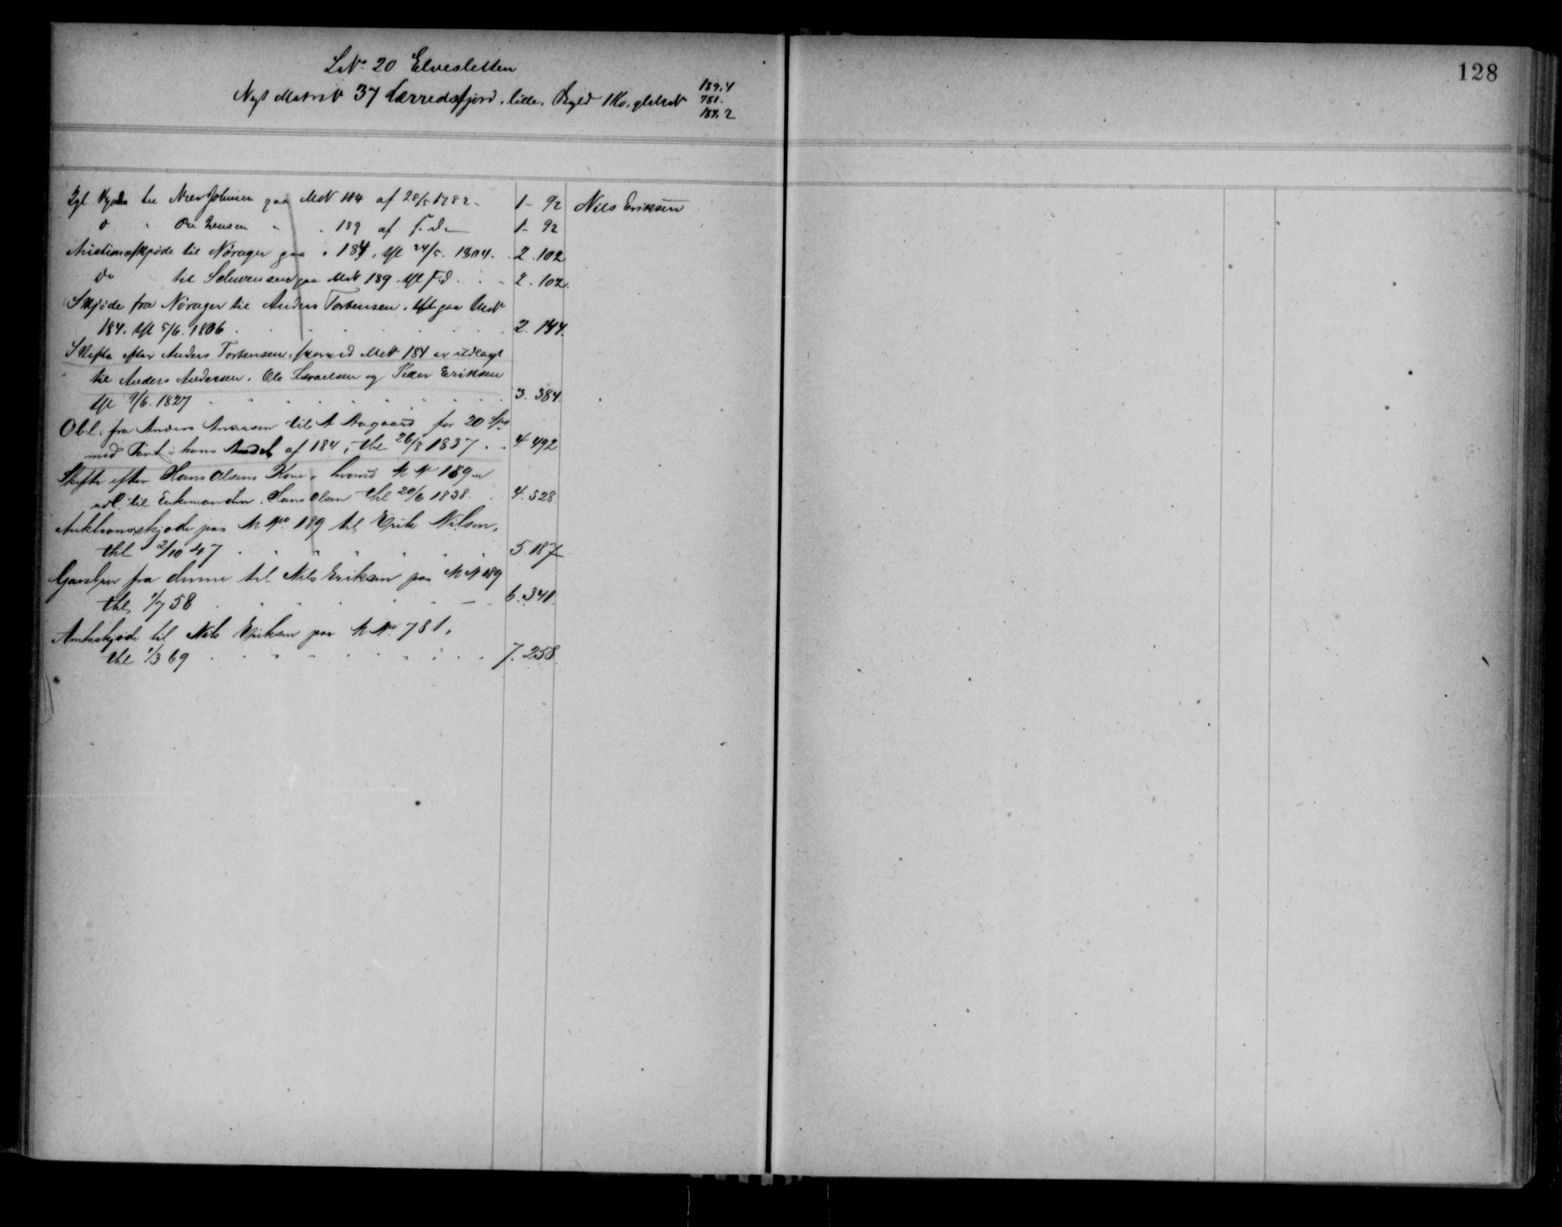 128
L.No 20 Elvesletten
Nyt Matr N 37 Lærredsfjord, lille. Bygld 1 Ko, gl Matr N 184.4
781.
189.2
Kgl Bygsel til Niels Johnsen paa MN 184 af 28/5 1782 1 - 92 Nils Eriksen
do " Ole Jensen " " 189 af s. d. 1 - 92
Auctionsskjøde til Nørager paa " 184, thl 24/5. 1804. 2. 102
do til paa MN 189 thl s. d. 2. 102.
Skjøde fra Nørager til Anders Torbensen, paa MN
184. thl 5/6. 1806 2. 144.
Skifte efter Anders Torbensen, hvorved MN 184 er udlagt
til Anders Andersen, Ole Israelsen og Peder Eriksen
thl 9/6. 1827 3. 384
Obl. fra Anders Andersen til A Aagaard for 20 Spd
med Pant i hans Andel af 184, thl 26/8 1837 4 492
Skifte efter Hans Olsens Kone, hvorved M No 189 er
udl. til Enkemanden Hans Olsen thl 20/6 1838. 4. 528
Auktionsskjøde paa M No. 189 til Erik Nilsen,
thl 2/10 47 5. 187
fra denne til Nils Eriksen paa M N 189
thl 1/7 58 6. 341
Amtsskjøde til Nils Eriksen paa M No 781,
thl 1/3 69 7. 258